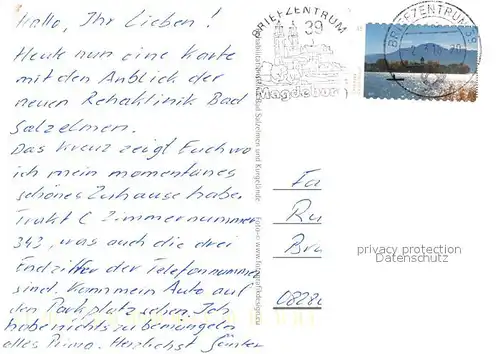 Hallo, Ihr Lieben!
Heute nun eine Karte
mit den Anblick der
neuen Rehaklinik Bad
Salzelmen.
Das Kreuz zeigt Euch wo
ich mein momentanes
schönes Zuhause habe.
Trakt C Zimmernummer
342, was auch die drei
Endziffer der Telefonnummer
sind. Kann mein Auto auf
den Parkplatz sehen. Ich
habe nichts zu bemängeln
alles Prima. Herzlichst Günter
BRIEFZENTRUM
39
Magdeburg
BRIEFZENTRUM 39
Bad Salzelmen und Kurgelände
Foto-© www.fotografikdesign.eu
Fa
Ru
Bra
0828
privacy protection
Datenschutz